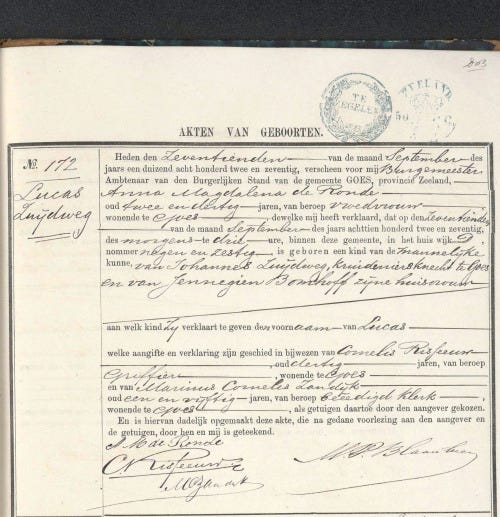 203
ZEELAND
TE
ZEGELEN
AKTEN VAN GEBOORTEN.
No. 172
Lucas
Zuijdweg
Heden den Zeventienden van de maand September des
jaars een duizend acht honderd twee en zeventig, verscheen voor mij Burgemeester
Ambtenaar van den Burgerlijken Stand van de gemeente GOES, provincie Zeeland,
Anna Magdalena de Ronde
oud twee en dertig jaren, van beroep vroedvrouw
wonende te Goes, dewelke mij heeft verklaard, dat op den Zeventienden
van de maand September des jaars achttien honderd twee en zeventig,
des morgens te drie ure, binnen deze gemeente, in het huis wijk D,
nommer negen en zestig, is geboren een kind van de mannelijke
kunne, van Johannes Zuijdweg, kruideniersknecht te Goes
en van Jennegien Bomhoff zijne huisvrouw
aan welk kind Zij verklaart te geven den voornaam van Lucas
welke aangifte en verklaring zijn geschied in bijwezen van Cornelis Risseeuw
, oud dertig jaren, van beroep
Griffier, wonende te Goes
en van Marinus Cornelis Zandijk
oud een en vijftig jaren, van beroep beëedigd klerk,
wonende te Goes, als getuigen daartoe door den aangever gekozen.
En is hiervan dadelijk opgemaakt deze akte, die na gedane voorlezing aan den aangever en
de getuigen, door hen en mij is geteekend.
A M de Ronde
C Risseeuw
MCZandijk